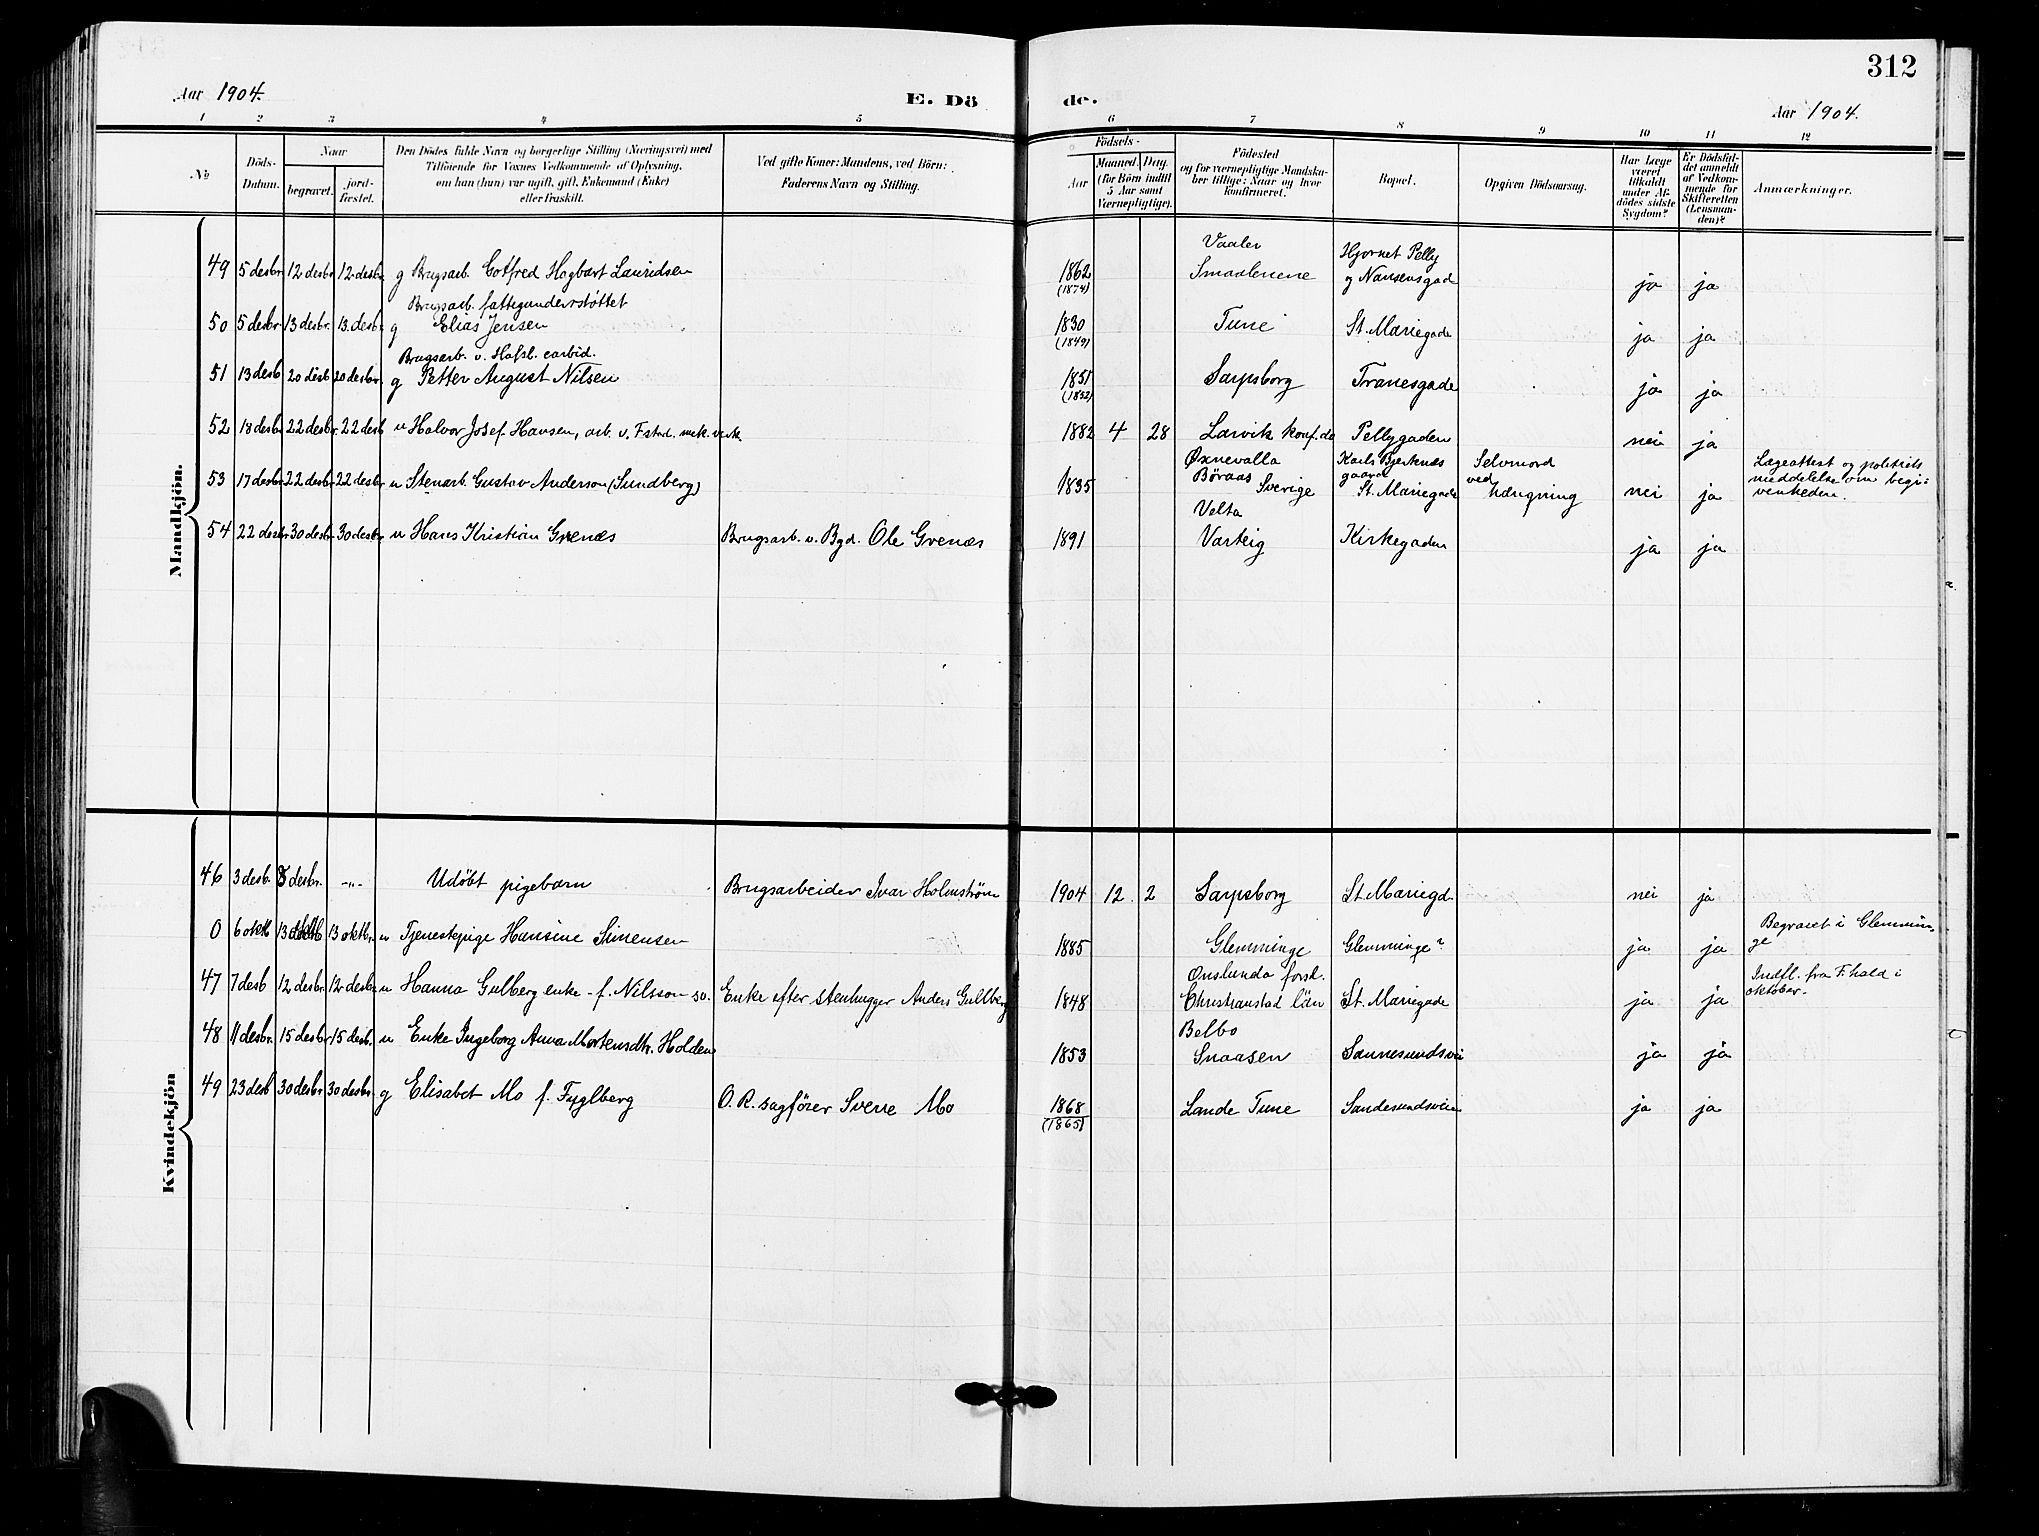 312
Aar 1904.
E. Dö
de.
Aar 1904.
1 2 3 3 4 5 6 7 8 9 10 11 12
No
Döds-
Datum.
Naar
begravet.
jord-
fæstet.
Den Dödes fulde Navn og borgerlige Stilling (Næringsvei) med
Tilföiende for Voxnes Vedkommende af Oplysning,
om han (hun) var ugift, gift, Enkemand (Enke)
eller fraskilt.
Ved gifte Koner: Mandens, ved Börn:
Faderens Navn og Stilling.
Födsels-
Aar
Maaned. Dag.
(for Börn indtil
5 Aar samt
Værnepligtige).
Födested
og for værnepligtige Mandska-
ber tillige: Naar og hvor
konfirmeret.
Bopæl.
Opgiven Dödsaarsag.
Har Læge
været
tilkaldt
under Af-
dödes sidste
Sygdom?
Er Dödsfal-
det anmeldt
af Vedkom-
mende for
Skifteretten
(Lensman-
den)?
Anmærkninger.
Mandkjön.
Vaaler Hjørnet Pelly
49 5 desbr. 12 desbr. 12 desbr. g Brugsarb. Gotfred Hagbart Lauridsen 1862 Smaalenene g Nansensgad ja ja
(1874)
Brugsarb. fattigunderstøttet
50 5 desbr. 13 desbr. 13. desbr. g Elias Jensen 1830 Tune St. Mariegade ja ja
(1849)
Brugsarb. v. Hafsl. carbid.
51 13 desb 20 desb 20 desbr. g Petter August Nilsen 1851 Sarpsborg Tranesgade ja ja
(1852)
52 18 desbr. 22 desbr. 22 desb u Halvor Josef Hansen, arb. v. Fstad. mek. verk. 1882 4 28 Larvik konf. do Pellygaden nei ja
Øxnevalla Karls Bjerknæs Selvmord Lægeattest og politiets
53 17 desbr. 22 desbr. 22 desbr. u Stenarb. Gustav Anderson (Sundberg) 1835 Børaas Sverige gaard St. Mariegade ved hængning nei ja meddelelse om begi-
venheden.
Velta
54 22 desbr. 30 desbr. 30 desbr. u Hans Kristian Grenæs Brugsarb. v. Byd. Ole Grenæs 1891 Varteig Kirkegaden ja ja
Kvindekjön
46 3 desb. 8 desbr. -„- Udøbt pigebarn Brugsarbeider Ivar Holmstrøm 1904 12 2 Sarpsborg St. Mariegd. nei ja
0 6 oktb 13 oktb 13 oktbr. u Tjenestepige Hansine Simensen 1885 Glemminge Glemminge? ja ja Begravet i Glemmin-
ge
Onslunda forsk. Indfl. fra F.hald i
47 7 desb 12 desbr. 12 desbr. u Hanna Gulberg enke - f. Nilsson Enke efter stenhugger Anders Gullberg 1848 Christianstad län St. Mariegade ja ja oktober.
Belbo
48 11 desbr. 15 desbr. 15 desb. u Enke Ingeborg Anna Mortensdtr. Holden 1853 Snaasen Sannesundsvei ja ja
49 23 desb 30 desbr. 30 desbr. g Elisabet Mo f. Fyglberg O. R. sagfører Sverre Mo 1868 Lande Tune Sandesundsveien ja ja
(1865)